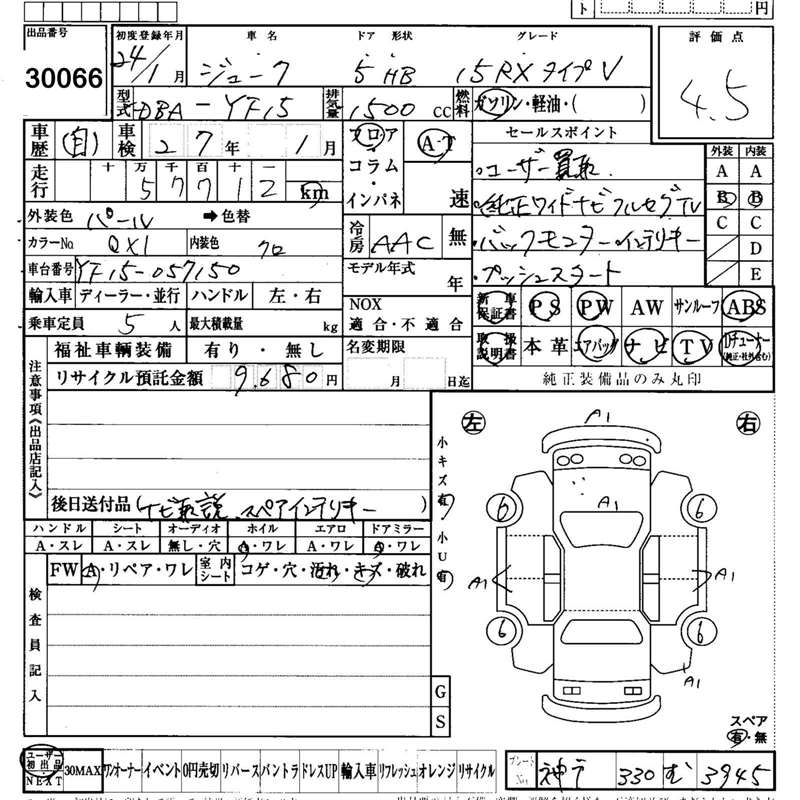 出品番号 初度登録年月 車名 ドア 形状 グレード 評価点
30066 24/1月 ジューク 5 HB 15RX タイプV 4.5
型式 DBA-YF15 排気量 1500 cc 燃料 ガソリン・軽油・( )
車歴 (自) 車検 27年 1月 フロア コラム・インパネ AT 速 セールスポイント
走行 十 万 千 百 十 一 57712 km
・ユーザー買取
・純正ワイドナビフルセグTV
・バックモニター・インテリキー
・プッシュスタート
外装 内装
A A
B B
C C
D
E
外装色 パール ➡色替 冷房 AAC 無
カラーNo. QX1 内装色 クロ
車台番号 YF15-057150 モデル年式 年
輸入車 ディーラー・並行 ハンドル 左・右 NOX 適合・不適合
新車保証書 PS PW AW サンルーフ ABS
乗車定員 5人 最大積載量 kg
取扱説明書 本革 エアバッグ ナビ TV Dチューナー(純正・社外含む)
福祉車輌装備 有り・無し 名変期限 月 日迄
純正装備品のみ丸印
リサイクル預託金額 9,680円
注意事項《出品店記入》
後日送付品(ナビ取説、スペアインテリキー )
ハンドル シート オーディオ ホイル エアロ ドアミラー
A・スレ A・スレ 無し・穴 A・ワレ A・ワレ A・ワレ
FW A・リペア・ワレ 室内シート コゲ・穴・汚れ・キズ・破れ
検査員記入
G
S
左 右
小キズ有
小U有
A1
A1
6 6
A1 A1
6 6
A1
スペア
有・無
ユーザー初出品NEXT 30MAX ワンオーナー イベント 0円売切 リバース バントラ ドレスUP 輸入車 リフレッシュ オレンジ リサイクル
プレートNo. 神戸 330 む 3945